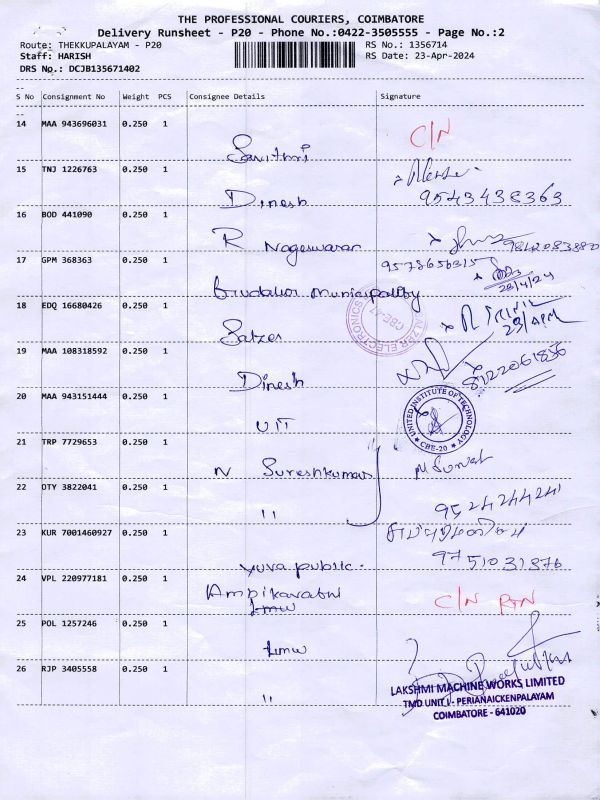 THE PROFESSIONAL COURIERS, COIMBATORE
Delivery Runsheet - P20 - Phone No.:0422-3505555 - Page No.:2
Route: THEKKUPALAYAM - P20 RS No.: 1356714
Staff: HARISH RS Date: 23-Apr-2024
DRS No.: DCJB135671402
S No Consignment No Weight PCS Consignee Details Signature
14 MAA 943696031 0.250 1
C/N
Savithri
15 TNJ 1226763 0.250 1
Dinesh 9543438363
16 BOD 441090 0.250 1
R Nageswaran
17 GPM 368363 0.250 1 9578656315
Gudalur Municipality 23/4/24
18 EDQ 16680426 0.250 1
Salzer
SALZER ELECTRONICS
CBE-47
23/APR
19 MAA 108318592 0.250 1
Dinesh 8122061856
20 MAA 943151444 0.250 1
UIT
UNITED INSTITUTE OF TECHNOLOGY
★ CBE-20 ★
21 TRP 7729653 0.250 1
N Sureshkumar
22 OTY 3822041 0.250 1
" 9524244241
23 KUR 7001460927 0.250 1
Yuva public. 9751031376
24 VPL 220977181 0.250 1
Lmw C/N RTN
25 POL 1257246 0.250 1
Lmw
26 RJP 3405558 0.250 1
"
LAKSHMI MACHINE WORKS LIMITED
TMD UNIT I - PERIANAICKENPALAYAM
COIMBATORE - 641020